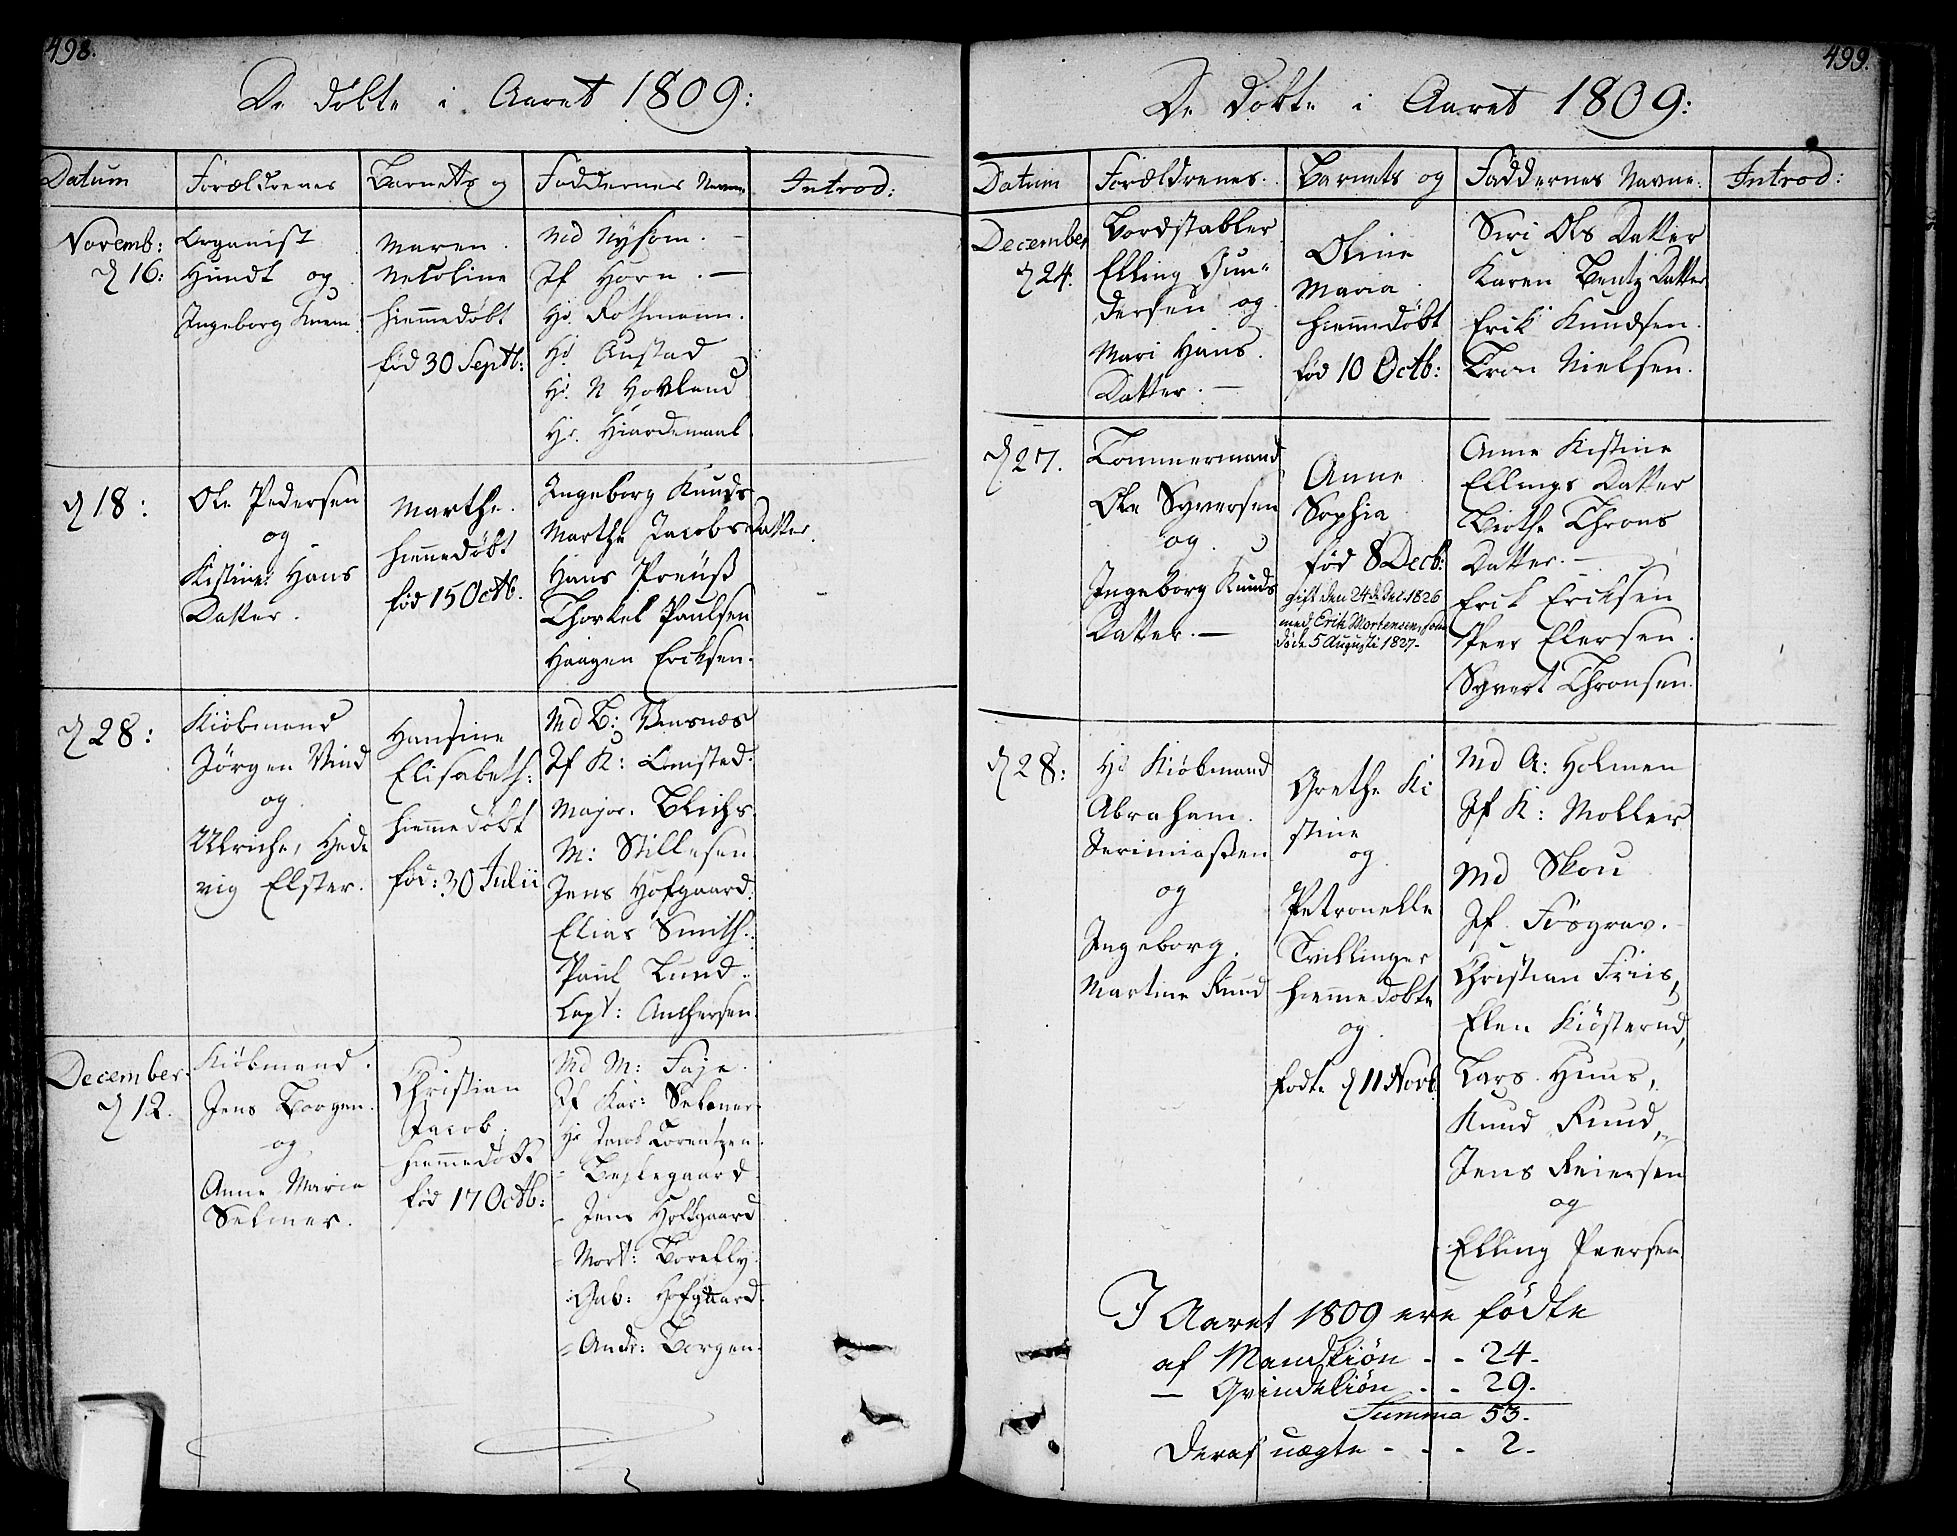 498.
De døbte i Aaret 1809:
Datum
Forældrenes
Barnets og
Faddernes Navne
Introd:
Novemb:
d 16:
Organist
Hundt og
Ingeborg
Maren
Nicoline
hiemmedøbt
fød 30 Septb:
Md Nysom. —
Jf Horn. —
Hr. Rothmann.
Hr. Austad
Hr. N Hovland
Hr. Hiardemaal
d 18:
Ole Pedersen
og
Kistine Hans
Datter.
Marthe.
hiemmedøbt
fød 15 Octb.
Ingeborg Knuds
Marthe Jacobs Datter.
Hans Preüss
Thorkel Paulsen
Haagen Ericksen.
d 28:
Kiøbmand
Jørgen Wind
og
Ulriche, Hede
vig Elster.
Hansine
Elisabeth:
hiemmedøbt
fød: 30 Julii
Md B:
Jf K: Omsted.
Major. Blichs
M: Stillesen
Jens Hofgaard:
Elias Smith.
Paul Lund.
Capt: Anthersen.
December
d 12.
Kiøbmand.
Jens Borgen.
og
Anne Marie
Selmer.
Christian
Jacob.
hiemmedøbt
fød 17 Octb:
Md M: Faje.
Jf Kar: Selmer
Hr Jacob Lorentzen.
- Beslegaard
- Jens Hofgaard
- Mort: Borefly.
- Gab: Hofgaard.
- Andr: Borgen.
499.
De døbte i Aaret 1809:
Datum
Forældrenes.
Barnets og
Faddernes Navne.
Introd:
December
d 24.
Bordstabler
Elling Gun-
dersen og
Mari Hans
Datter. —
Oline
Maria
hiemmedøbt
fød 10 Octb:
Siri Ols Datter
Karen Bentz Datter
Erik Knudsen.
Tron Nielsen.
d 27.
Tømmermand
Ole Syversen
og
Ingeborg Knuds
Datter. —
Anne
Sophia
fød 8 Decb:
gift den 24de 1826
med Erik Mortensen, som
døde 5 Augusti 1827.
Anne Kistine
Ellings Datter
Birthe Throns
Datter. —
Erick Ericksen
Peer Elersen.
Syvert Thronsen.
d 28:
Hr Kiøbmand
Abraham
Jerimiassen
og
Ingeborg
Martine Rund
Grethe Ki
stine
og
Petronelle
Tvillinger
hiemmedøbte
og
fødte d 11 Novb
Md A: Holmen
Jf K: Møller
Md Skou
Jf. Fosgrav.
Christian Friis,
Elen Kiøsterud,
Lars Huus,
Knud Rund,
Jens Reiersen
og
Elling Peersen.
I Aaret 1809 ere fødte
af Mandkiøn - - 24-
— Qvindekiøn - - 29.
Summa 53.
Deraf uægte - - - 2-